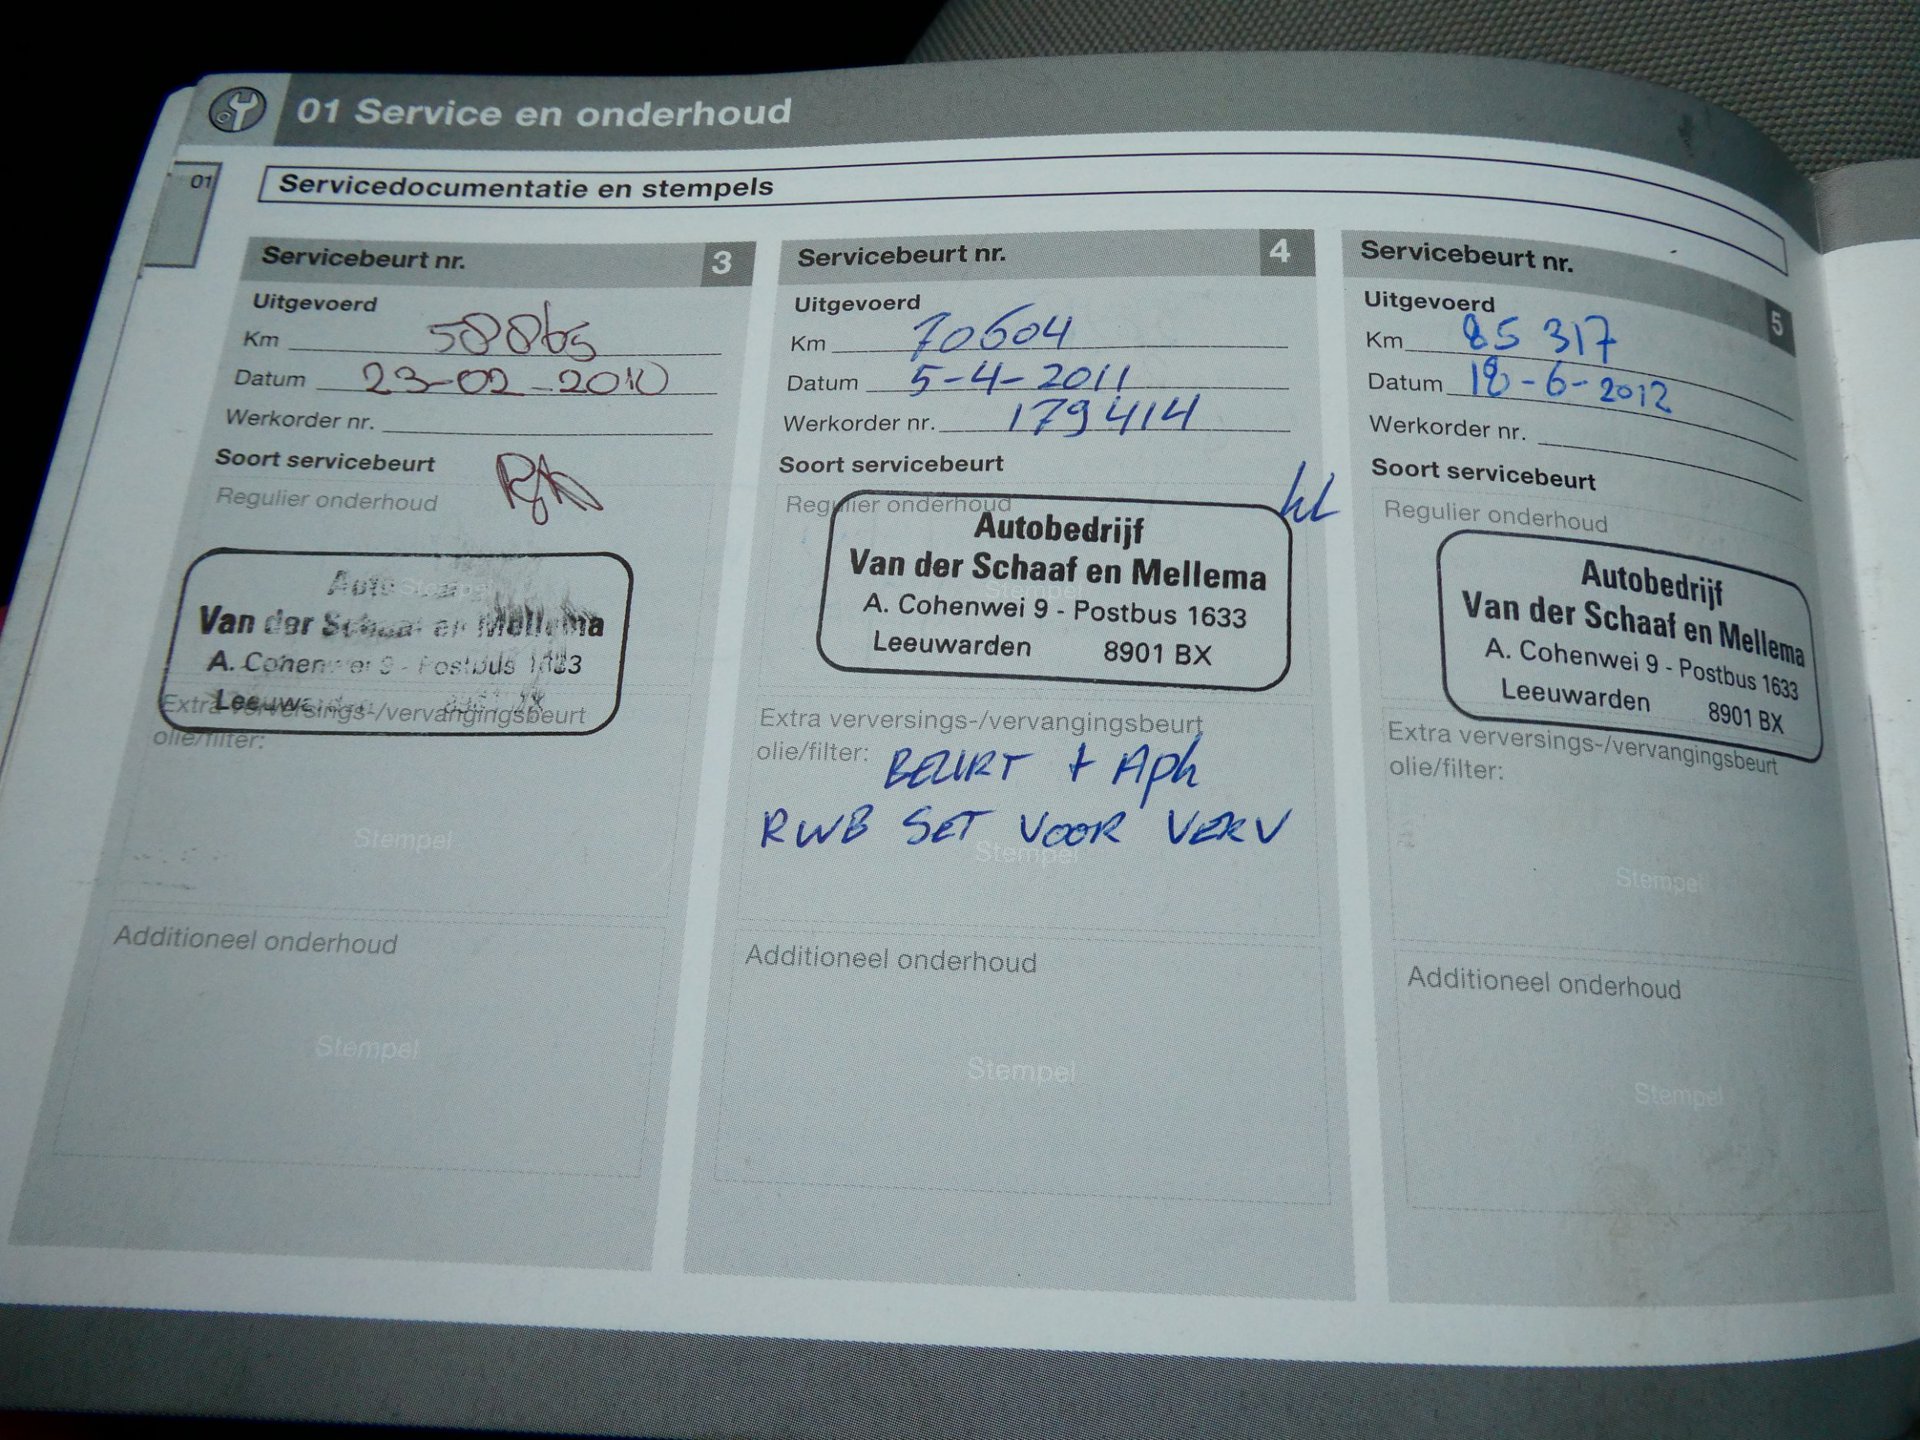 01 Service en onderhoud
01
Servicedocumentatie en stempels
Servicebeurt nr. 3
Uitgevoerd
Km 58865
Datum 23-02-2010
Werkorder nr.
Soort servicebeurt
Regulier onderhoud
Stempel
Auto
Van der Schaaf en Mellema
A. Cohenwei 9 - Postbus 1633
Leeuwarden 8901 BX
Extra verversings-/vervangingsbeurt
olie/filter:
Stempel
Additioneel onderhoud
Stempel
Servicebeurt nr. 4
Uitgevoerd
Km 70604
Datum 5-4-2011
Werkorder nr. 179414
Soort servicebeurt
Regulier onderhoud
Autobedrijf
Van der Schaaf en Mellema
Stempel
A. Cohenwei 9 - Postbus 1633
Leeuwarden 8901 BX
Extra verversings-/vervangingsbeurt
olie/filter: BEURT + Apk
RWB SET VOOR VERV
Stempel
Additioneel onderhoud
Stempel
Servicebeurt nr. 5
Uitgevoerd
Km 85 317
Datum 18-6-2012
Werkorder nr.
Soort servicebeurt
Regulier onderhoud
Autobedrijf
Van der Schaaf en Mellema
A. Cohenwei 9 - Postbus 1633
Leeuwarden 8901 BX
Extra verversings-/vervangingsbeurt
olie/filter:
Stempel
Additioneel onderhoud
Stempel